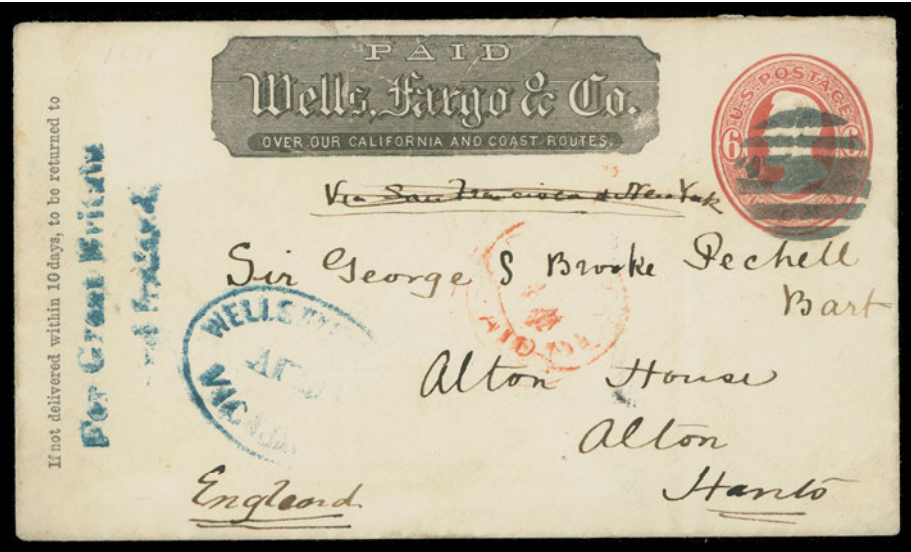 PAID
Wells, Fargo & Co.
OVER OUR CALIFORNIA AND COAST ROUTES.
U.S. POSTAGE
6 6
If not delivered within 10 days, to be returned to
For Great Britain
Ireland
Via San Francisco & New York
Sir George S Brooke Pechell
Bart
WELLS
VIC
PAID
Alton House
Alton
Hants
England